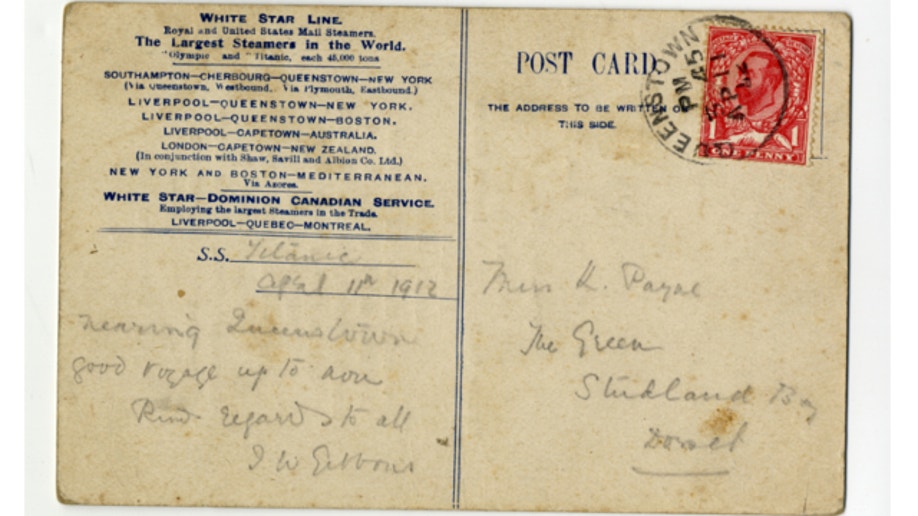 WHITE STAR LINE.
Royal and United States Mail Steamers.
The Largest Steamers in the World.
"Olympic and "Titanic, each 45,000 tons
SOUTHAMPTON—CHERBOURG—QUEENSTOWN—NEW YORK
(Via Queenstown, Westbound, Via Plymouth, Eastbound.)
LIVERPOOL—QUEENSTOWN—NEW YORK.
LIVERPOOL—QUEENSTOWN—BOSTON.
LIVERPOOL—CAPETOWN—AUSTRALIA.
LONDON—CAPETOWN—NEW ZEALAND.
(In conjunction with Shaw, Savill and Albion Co. Ltd.)
NEW YORK AND BOSTON—MEDITERRANEAN.
Via Azores.
WHITE STAR—DOMINION CANADIAN SERVICE.
Employing the largest Steamers in the Trade.
LIVERPOOL—QUEBEC—MONTREAL.
S.S. Titanic
April 11th 1912
nearing Queenstown
good voyage up to now
Kind regards to all
J W Gibbons
POST CARD
THE ADDRESS TO BE WRITTEN ON
THIS SIDE.
QUEENSTOWN
PM
AP 11
12
1 1
ONE PENNY
Miss H. Payne
The Green
Studland Bay
Dorset